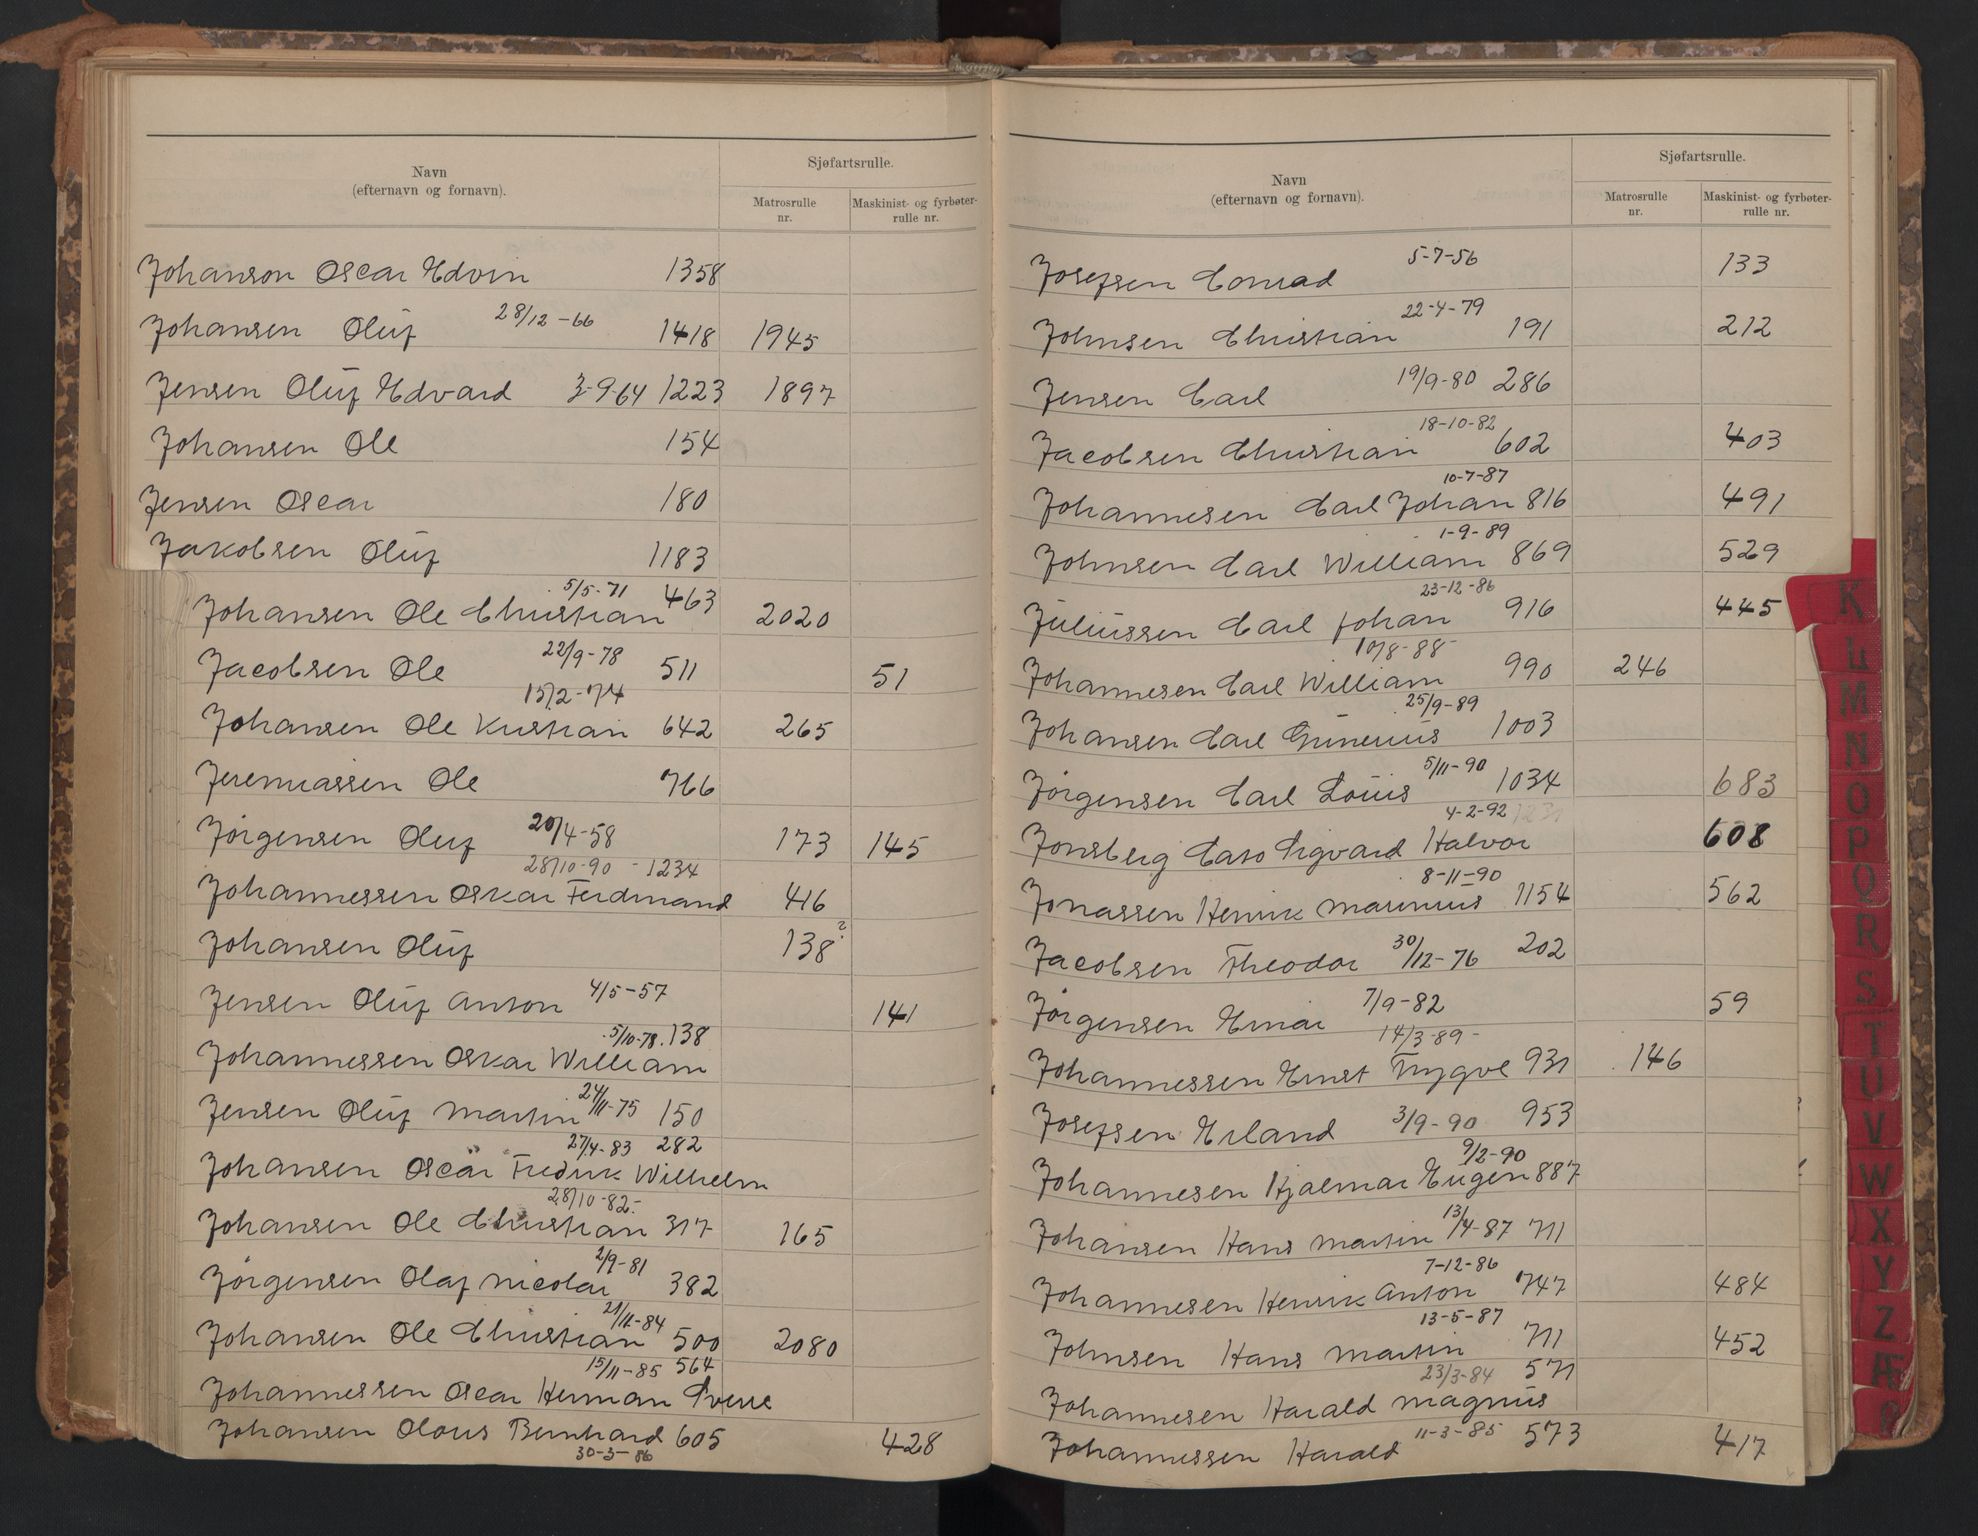 Navn
(efternavn og fornavn).
Sjøfartsrulle.
Matrosrulle
nr.
Maskinist- og fyrbøter-
rulle nr.
Johanson Oscar Edvin 1358
Johansen Oluf 28/12-66 1418 1945
Jensen Oluf Edvard 3-9-64 1223 1897
Johansen Ole 154
Jensen Oscar 180
Jakobsen Oluf 1183
Johansen Ole Christian 5/5-71 463 2020
Jacobsen Ole 22/9-78 511 51
Johansen Ole Kristian 15/2-74 642 265
Jeremiassen Ole 766
Jørgensen Oluf 20/4-58 173 145
28/10-90 - 1234
Johannessen Oskar Ferdinand 416
Johansen Oluf 138?
Jensen Oluf Anton 4/5-57 141
5/10-78. 138
Johannessen Oskar William
Jensen Oluf Martin 24/11-75 150
27/4-83 282
Johansen Oscar Fredrik Wilhelm
28/10-82-
Johansen Ole Christian 317 165
Jørgensen Olaf Nicolai 2/9-81 382
Johansen Ole Christian 21/11-84 500 2080
15/11-85 564
Johannessen Oscar Herman Sverre
Johansen Olaus Bernhard 605 428
30-3-86
Navn
(efternavn og fornavn).
Sjøfartsrulle.
Matrosrulle
nr.
Maskinist- og fyrbøter-
rulle nr.
Josefsen Conrad 5-7-56 133
Johnsen Christian 22-4-79 191 212
Jensen Carl 19/9-80 286
Jacobsen Christian 18-10-82 602 403
Johannesen Carl Johan 10-7-87 816 491
Johnsen Carl William 1-9-89 869 529
Juliussen Carl Johan 23-12-86 916 445
Johannesen Carl William 10/8-88 990 246
Johansen Carl Gunerius 25/9-89 1003
Jørgensen Carl Louis 5/11-90 1034 683
4-2-92 1231
Jonsberg Caso Sigvard Halvor 608
Jonassen Henrik Marinius 8-11-90 1154 562
Jacobsen Theodor 30/12-76 202
Jørgensen Einar 7/9-82 59
Johannessen Ernst Trygve 14/3-89- 931 146
Josefsen Erland 3/9-90 953
Johannesen Hjalmar Eugen 9/2-90 887
Johansen Hans Martin 13/4-87 711
Johannesen Henrik Anton 7-12-86 747 484
Johnsen Hans Martin 13-5-87 711 452
23/3-84 571
Johannesen Harald Magnus
Johannessen Harald 11-3-85 573 417
K
L
M
N
O
P
Q
R
S
T
U
V
W
X
Y
Z
Æ
Ø